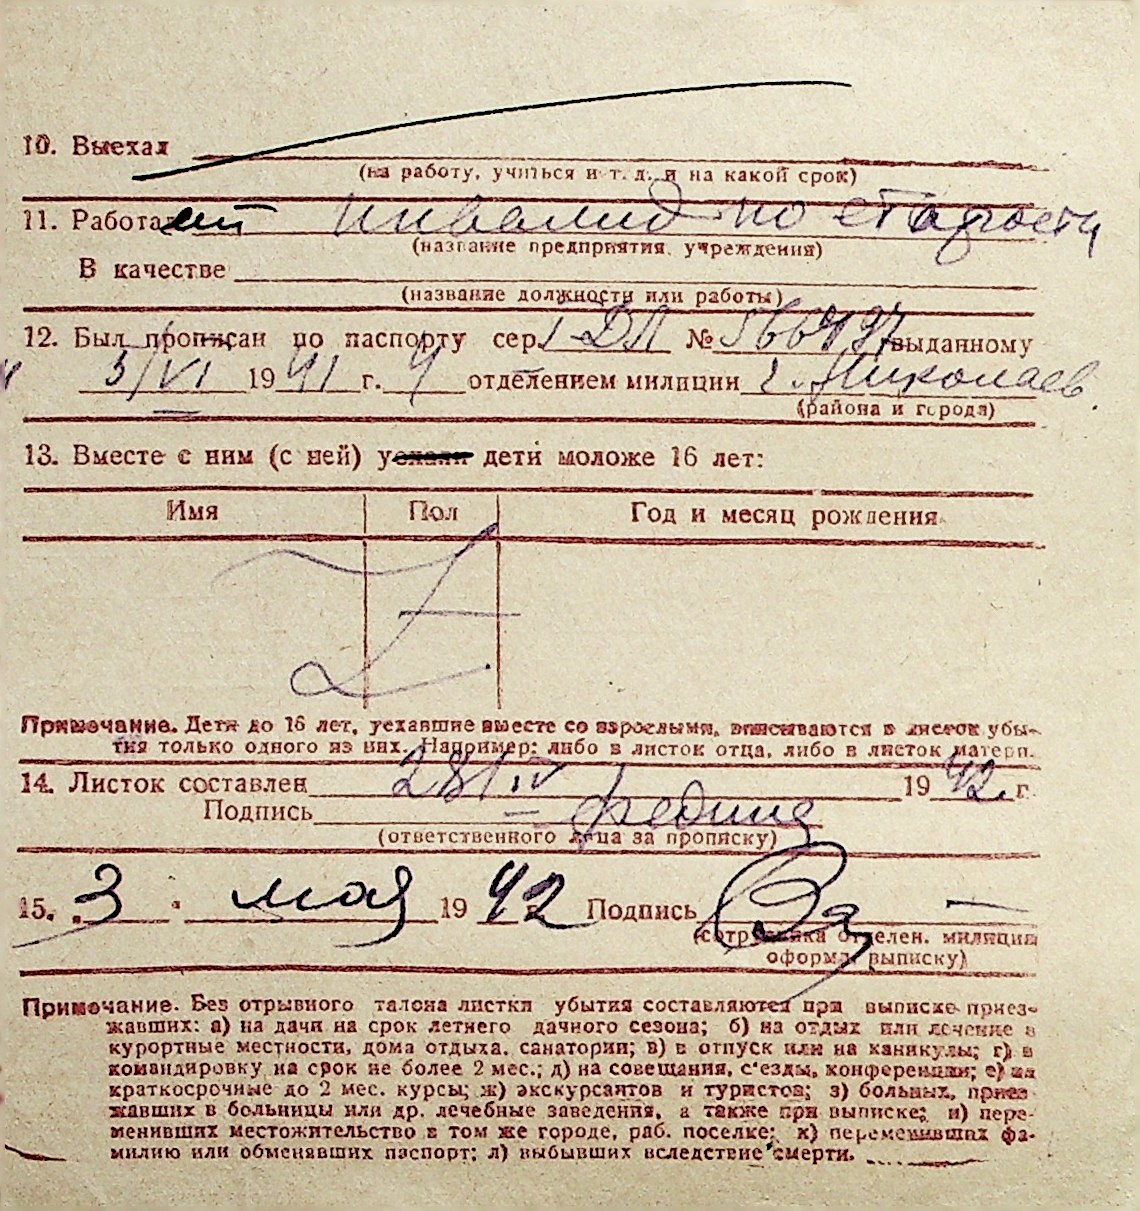 10. Выехал
(на работу, учиться и т. д. и на какой срок)
11. Работает инвалид по старости
(название предприятия, учреждения)
В качестве
(название должности или работы)
12. Был прописан по паспорту сер. I ДЛ № выданному
3/VI 1941 г. 4 отделением милиции г. Николаев.
(района и города)
13. Вместе с ним (с ней) уехали дети моложе 16 лет:
Имя Пол Год и месяц рождения
Z
Примечание. Дети до 16 лет, уехавшие вместе со взрослыми, вписываются в листок убы-
тия только одного из них. Например: либо в листок отца, либо в листок матери.
14. Листок составлен 28/IV 1942 г.
Подпись
(ответственного лица за прописку)
15. 3 мая 1942 Подпись
(сотрудника отделен. милиции
оформл. выписку)
Примечание. Без отрывного талона листки убытия составляются при выписке приез-
жавших: а) на дачи на срок летнего дачного сезона; б) на отдых или лечение в
курортные местности, дома отдыха, санатории; в) в отпуск или на каникулы; г) в
командировку на срок не более 2 мес.; д) на совещания, с'езды, конференции; е) на
краткосрочные до 2 мес. курсы; ж) экскурсантов и туристов; з) больных, приез-
жавших в больницы или др. лечебные заведения, а также при выписке; и) пере-
менивших местожительство в том же городе, раб. поселке; к) переменивших фа-
милию или обменявших паспорт; л) выбывших вследствие смерти.